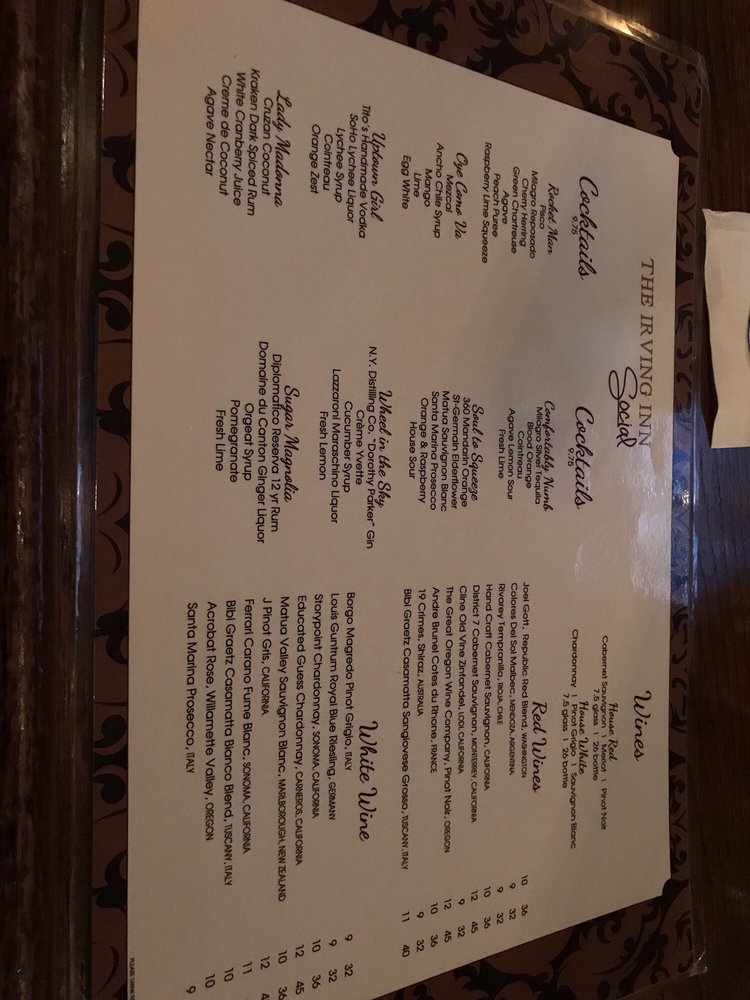 THE IRVING INN
Social
Cocktails
9.75
Rocket Man
Pisco
Milagro Reposado
Cherry Herring
Green Chartreuse
Agave
Peach Puree
Raspberry Lime Squeeze
Oye Como Va
Mezcal
Ancho Chile Syrup
Mango
Lime
Egg White
Uptown Girl
Tito's Handmade Vodka
SoHo Lychee Liquor
Lychee Syrup
Cointreau
Orange Zest
Lady Madonna
Cruzan Coconut
Kraken Dark Spiced Rum
White Cranberry Juice
Creme de Coconut
Agave Nectar
Cocktails
9.75
Comfortably Numb
Milagro Silver Tequila
Blood Orange
Cointreau
Agave Lemon Sour
Fresh Lime
Soul to Squeeze
360 Mandarin Orange
St-Germain Elderflower
Matua Sauvignon Blanc
Santa Marina Prosecco
Orange & Raspberry
House Sour
Wheel in the Sky
N.Y. Distilling Co. "Dorothy Parker" Gin
Crème Yvette
Cucumber Syrup
Lazzaroni Maraschino Liquor
Fresh Lemon
Sugar Magnolia
Diplomatico Reserva 12 yr Rum
Domaine du Canton Ginger Liquor
Orgeat Syrup
Pomegranate
Fresh Lime
Wines
House Red
Cabernet Sauvignon | Merlot | Pinot Noir
7.5 glass | 26 bottle
House White
Chardonnay | Pinot Grigio | Sauvignon Blanc
7.5 glass | 26 bottle
Red Wines
Joel Gott, Republic Red Blend, WASHINGTON 10 36
Colores Del Sol Malbec, MENDOZA, ARGENTINA 9 32
Rivarey Tempranillo, RIOJA, CHILE 9 32
Hand Craft Cabernet Sauvignon, CALIFORNIA 10 36
District 7 Cabernet Sauvignon, MONTERREY, CALIFORNIA 12 45
Cline Old Vine Zinfandel, LODI, CALIFORNIA 9 32
The Great Oregon Wine Company, Pinot Noir, OREGON 12 45
Andre Brunel Cotes du Rhone, FRANCE 10 36
19 Crimes, Shiraz, AUSTRALIA 9 32
Bibi Graetz Casamatta Sangiovese Grosso, TUSCANY, ITALY 11 40
White Wine
Borgo Magredo Pinot Grigio, ITALY 9 32
Louis Guntrum Royal Blue Riesling, GERMANY 9 32
Storypoint Chardonnay, SONOMA, CALIFORNIA 10 36
Educated Guess Chardonnay, CARNEROS, CALIFORNIA 12 45
Matua Valley Sauvignon Blanc, MARLBOROUGH, NEW ZEALAND 10 36
J Pinot Gris, CALIFORNIA 12
Ferrari Carano Fume Blanc, SONOMA, CALIFORNIA 11
Bibi Graetz Casamatta Bianco Blend, TUSCANY, ITALY 10
Acrobat Rose, Willamette Valley, OREGON 10
Santa Marina Prosecco, ITALY 9